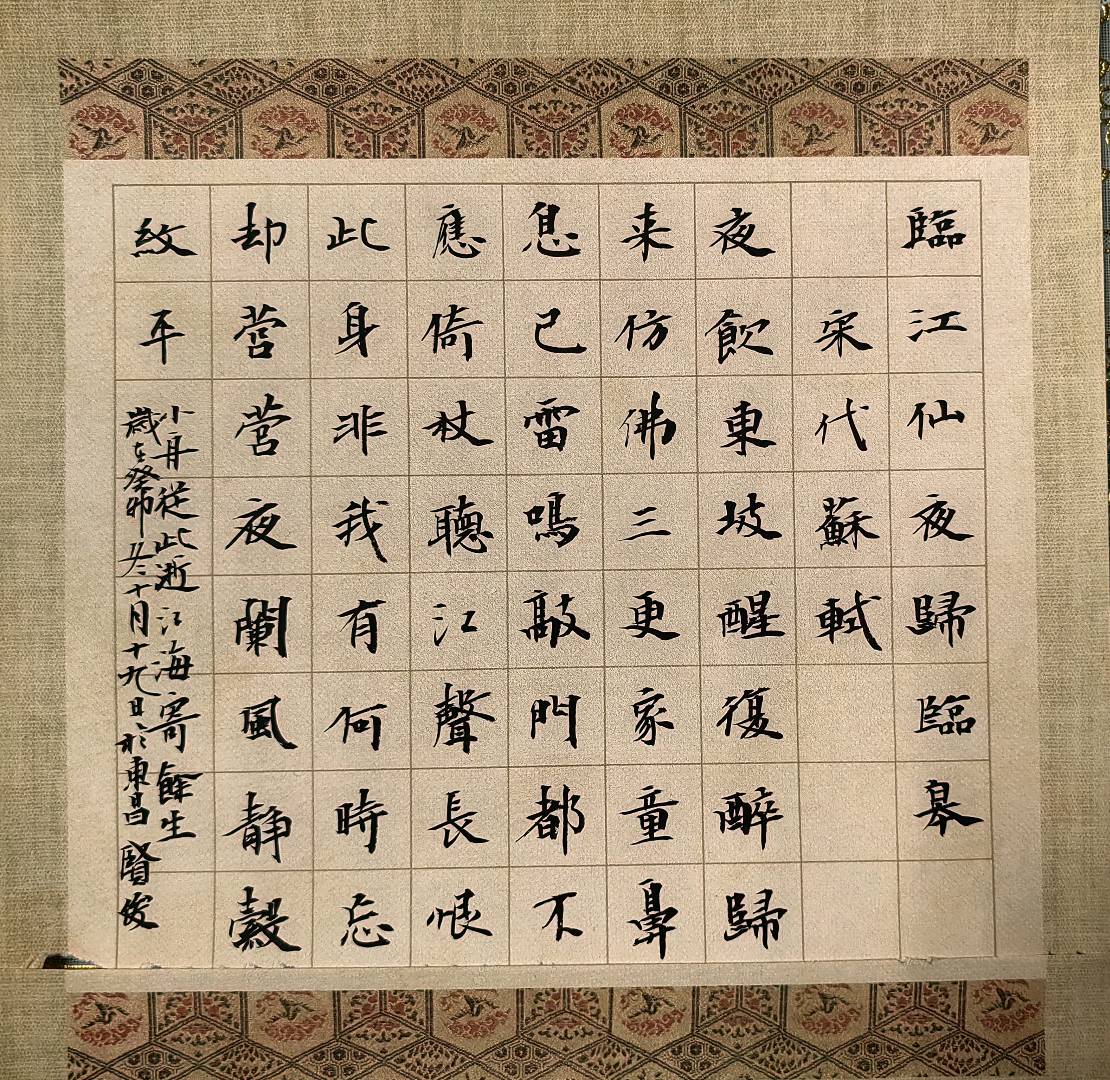 臨江仙夜歸臨皋
宋代蘇軾
夜飲東坡醒復醉歸
来仿佛三更家童鼻
息已雷鳴敲門都不
應倚杖聽江聲長恨
此身非我有何時忘
却营营夜闌風静縠
紋平
小舟從此逝江海寄餘生
歲在癸卯冬十月十九日於東昌賢俊